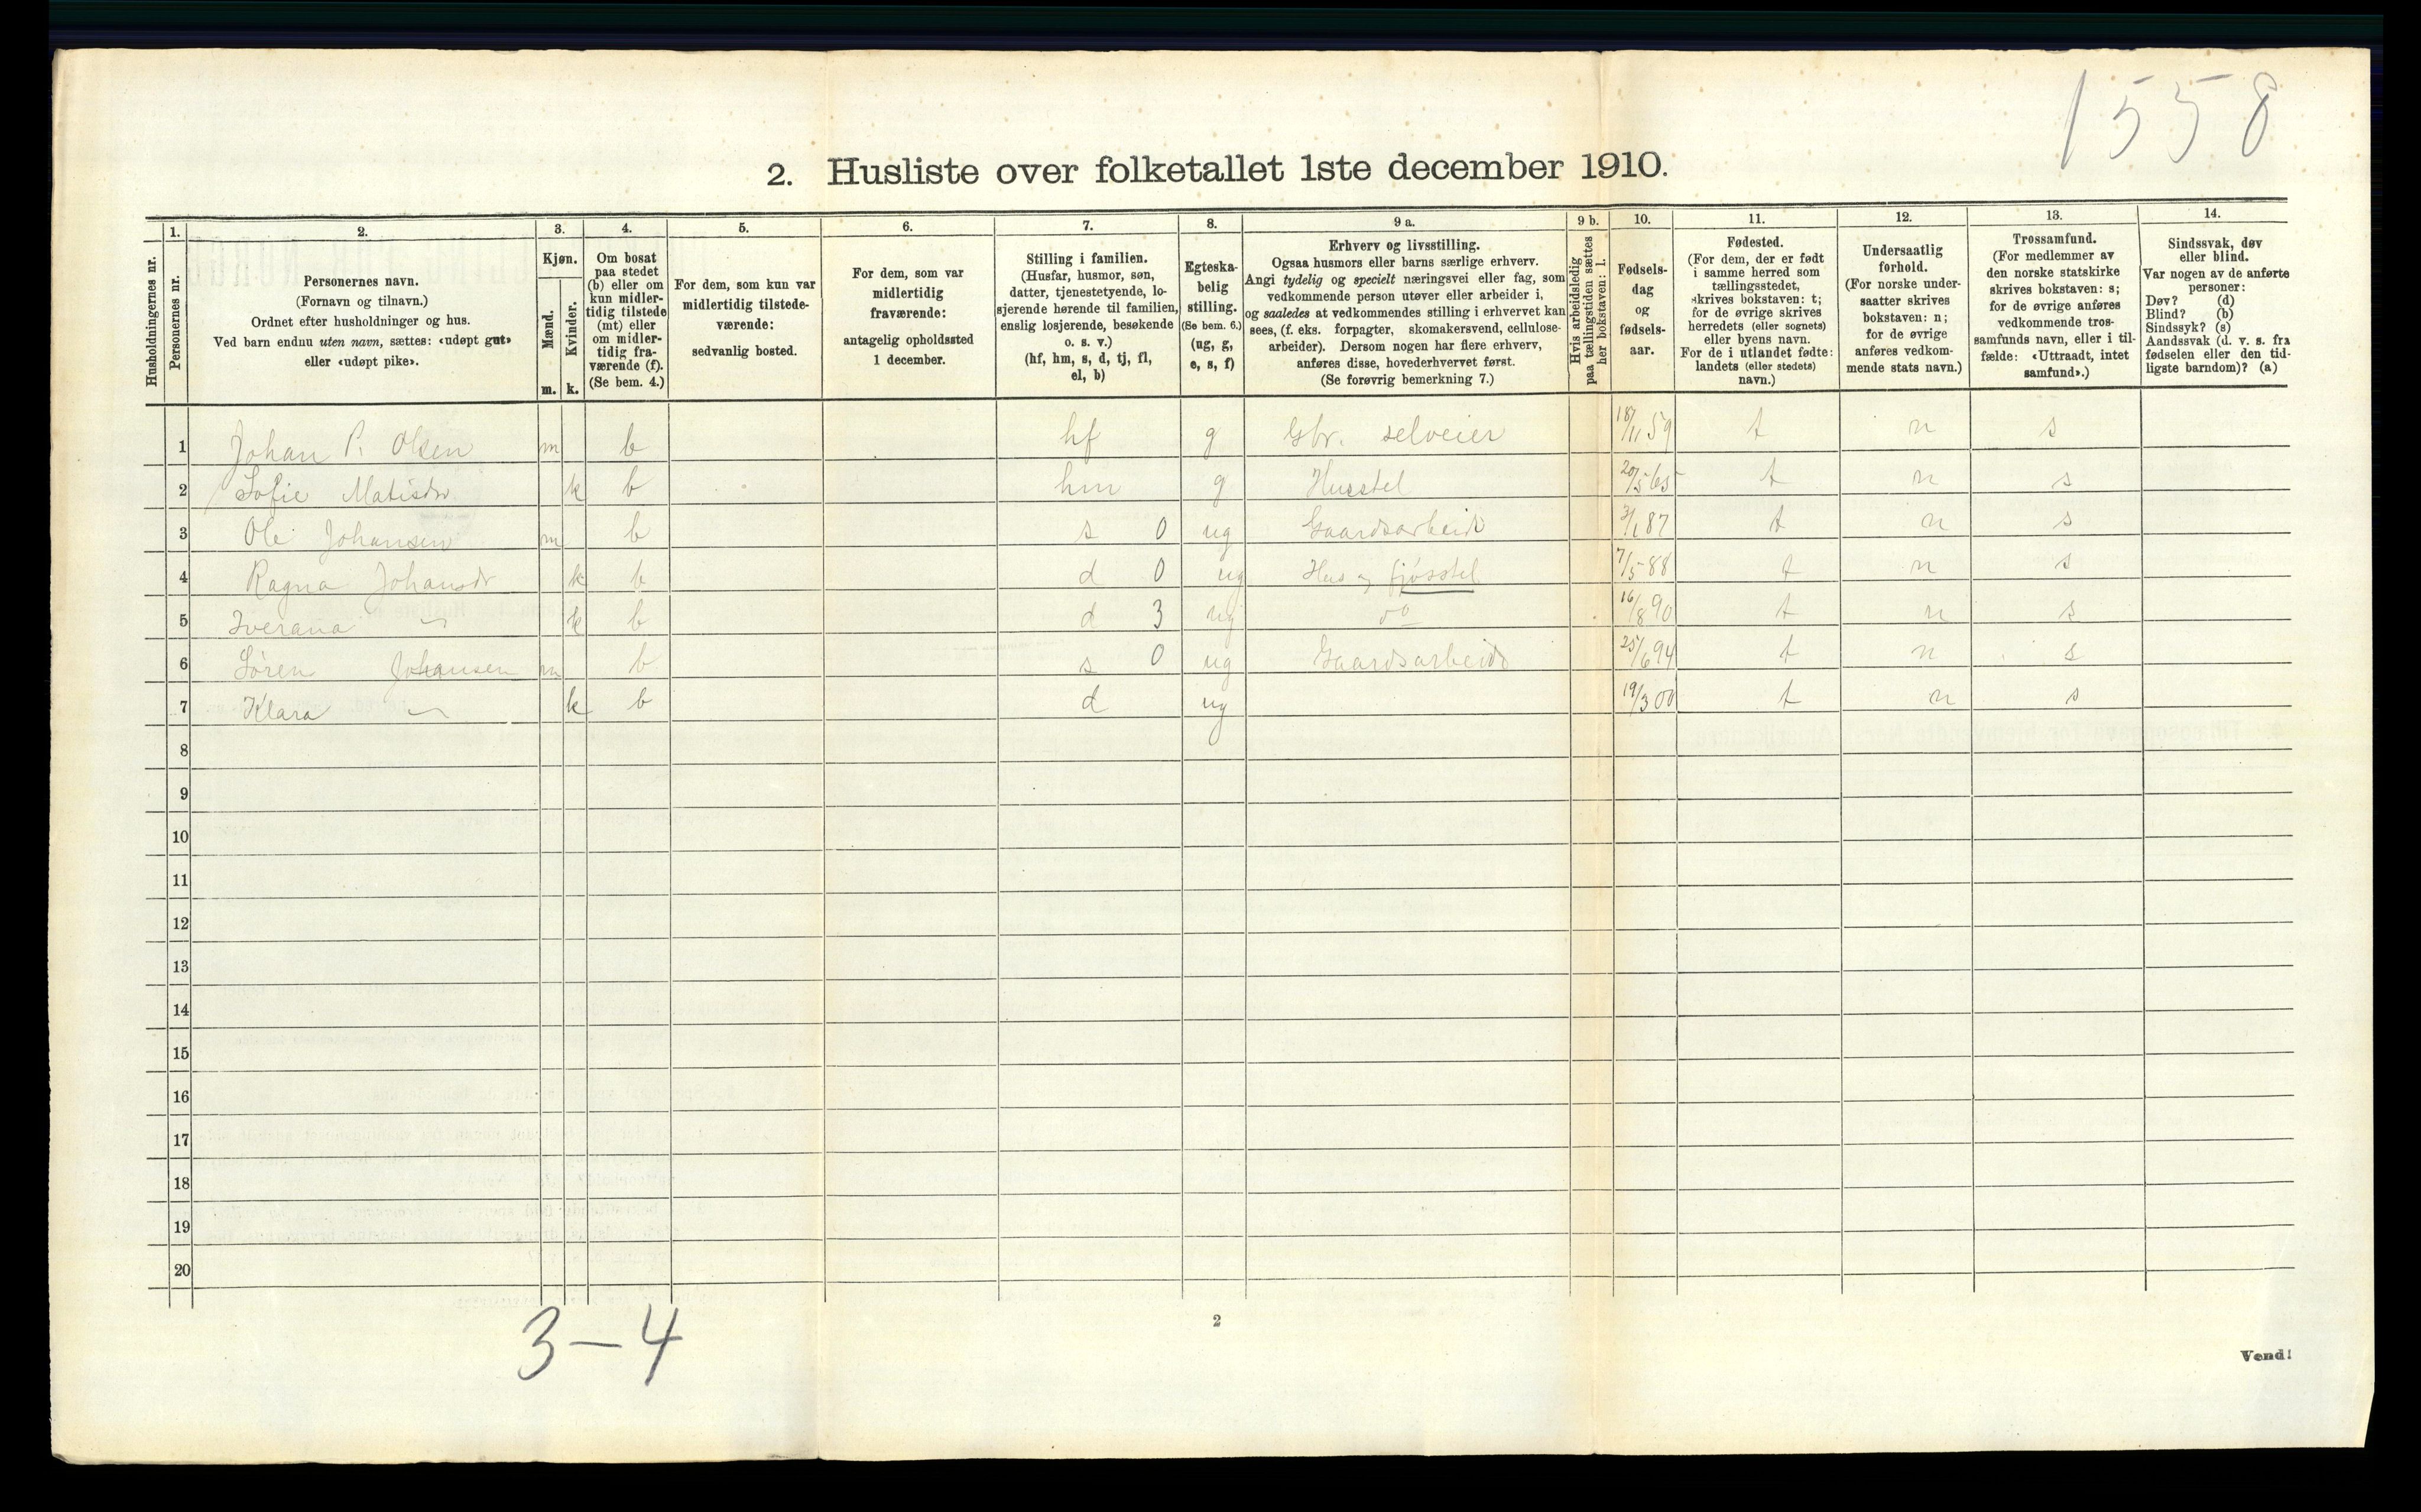 1558
2. Husliste over folketallet 1ste december 1910.
Husholdningernes nr.
1. Personernes nr.
2. Personernes navn. (Fornavn og tilnavn.) Ordnet efter husholdninger og hus. Ved barn endnu uten navn, sættes: «udøpt gut» eller «udøpt pike».
3. Kjøn. Mænd. m. Kvinder. k.
4. Om bosat paa stedet (b) eller om kun midlertidig tilstede (mt) eller om midlertidig fraværende (f). (Se bem. 4.)
5. For dem, som kun var midlertidig tilstedeværende: sedvanlig bosted.
6. For dem, som var midlertidig fraværende: antagelig opholdssted 1 december.
7. Stilling i familien. (Husfar, husmor, søn, datter, tjenestetyende, losjerende hørende til familien, enslig losjerende, besøkende o. s. v.) (hf, hm, s, d, tj, fl, el, b)
8. Egteskabelig stilling. (Se bem. 6.) (ug, g, e, s, f)
9 a. Erhverv og livsstilling. Ogsaa husmors eller barns særlige erhverv. Angi tydelig og specielt næringsvei eller fag, som vedkommende person utøver eller arbeider i, og saaledes at vedkommendes stilling i erhvervet kan sees, (f. eks. forpagter, skomakersvend, cellulosearbeider). Dersom nogen har flere erhverv, anføres disse, hovederhvervet først. (Se forøvrig bemerkning 7.)
9 b. Hvis arbeidsledig paa tællingstiden sættes her bokstaven: l.
10. Fødselsdag og fødselsaar.
11. Fødested. (For dem, der er født i samme herred som tællingsstedet, skrives bokstaven: t; for de øvrige skrives herredets (eller sognets) eller byens navn. For de i utlandet fødte: landets (eller stedets) navn.)
12. Undersaatlig forhold. (For norske undersaatter skrives bokstaven: n; for de øvrige anføres vedkommende stats navn.)
13. Trossamfund. (For medlemmer av den norske statskirke skrives bokstaven: s; for de øvrige anføres vedkommende trossamfunds navn, eller i tilfælde: «Uttraadt, intet samfund».)
14. Sindssvak, døv eller blind. Var nogen av de anførte personer: Døv? (d) Blind? (b) Sindssyk? (s) Aandssvak (d. v. s. fra fødselen eller den tidligste barndom)? (a)
1 Johan P. Olsen m b hf g Gbr. selveier 18/11 59 t n s
2 Sofie Matisdr k b hm g Husstel 20/5 65 t n s
3 Ole Johansen m b s 0 ug Gaardsarbeide 3/1 87 t n s
4 Ragna Johansdr k b d 0 ug Hus og fjøsstel 7/5 88 t n s
5 Iverana 〃 k b d 3 ug do 16/8 90 t n s
6 Søren Johansen m b s 0 ug Gaardsarbeide 25/6 94 t n s
7 Klara 〃 k b d ug 19/3 00 t n s
8
9
10
11
12
13
14
15
16
17
18
19
20
3-4
2
Vend!